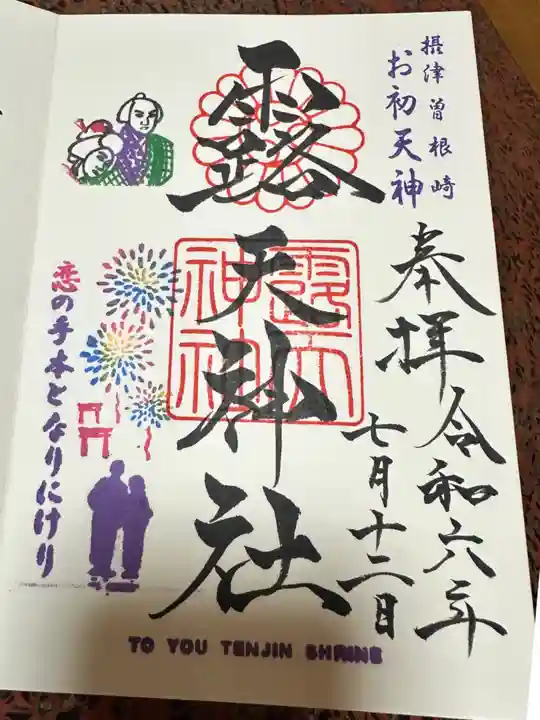 摂津曽根崎
お初天神
奉拝
令和六年
七月十二日
露天神社
露天
神社
恋の手本となりにけり
TO YOU TENJIN SHRINE